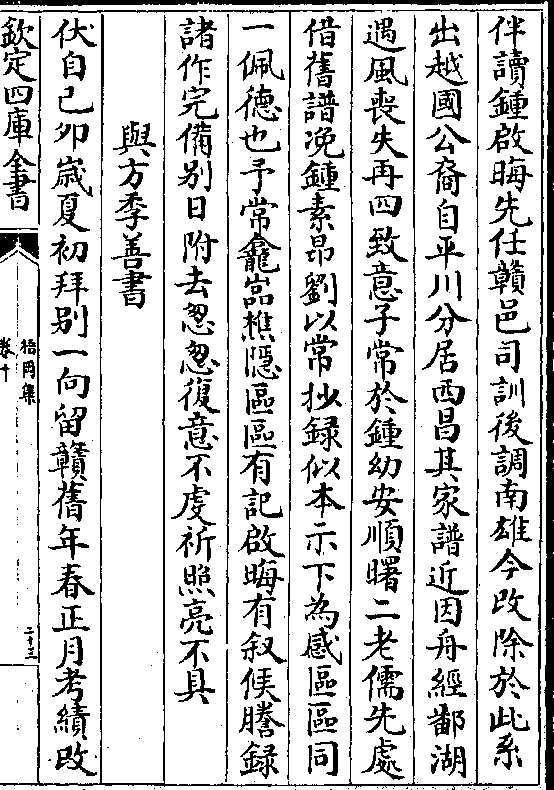 伴讀鍾啟晦先任贛邑司訓後調南雄今改除於此系
出越國公裔自平川分居西昌其家譜近因舟經鄱湖
遇風喪失再四致意子常於鍾幼安順曙二老儒先處
借舊譜浼鍾素昂劉以常抄錄似本示下為感區區同
一佩德也予常龕嵓樵隱區區有記啟晦有叙候謄録
諸作完備别日附去怱怱復意不䖍祈照亮不具
與方季善書
伏自己夘歲夏初拜别一向留贛舊年春正月考績改
欽定四庫全書
梧岡集
卷十
二十三